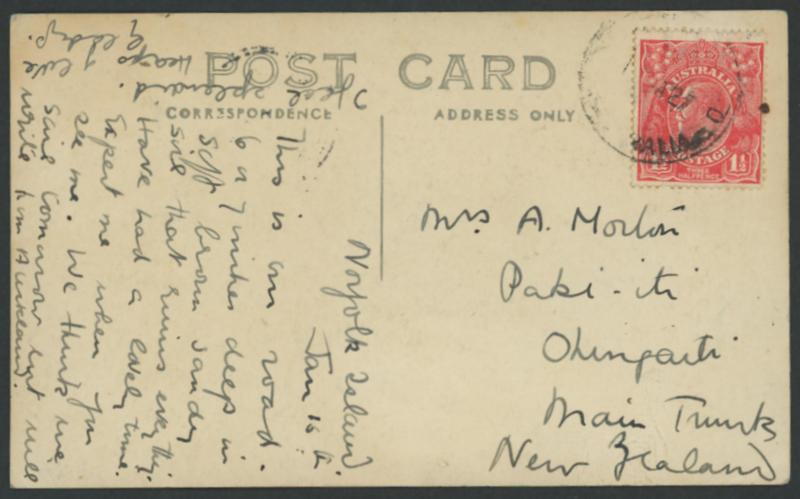 POST CARD
CORRESPONDENCE
ADDRESS ONLY
AUSTRALIA
POSTAGE
THREE
HALFPENCE
1½
Norfolk Island
Jan 16
This is our road.
6 or 7 inches deep in
soft brown sandy
soil that ruins everything.
Have had a lovely time.
Expect me when you
see me. We think we
sail tomorrow but will
write from Auckland.
I feel splendid
Heaps
love
Mrs A. Morton
Paki-iti
Ohingaiti
Main Trunk
New Zealand